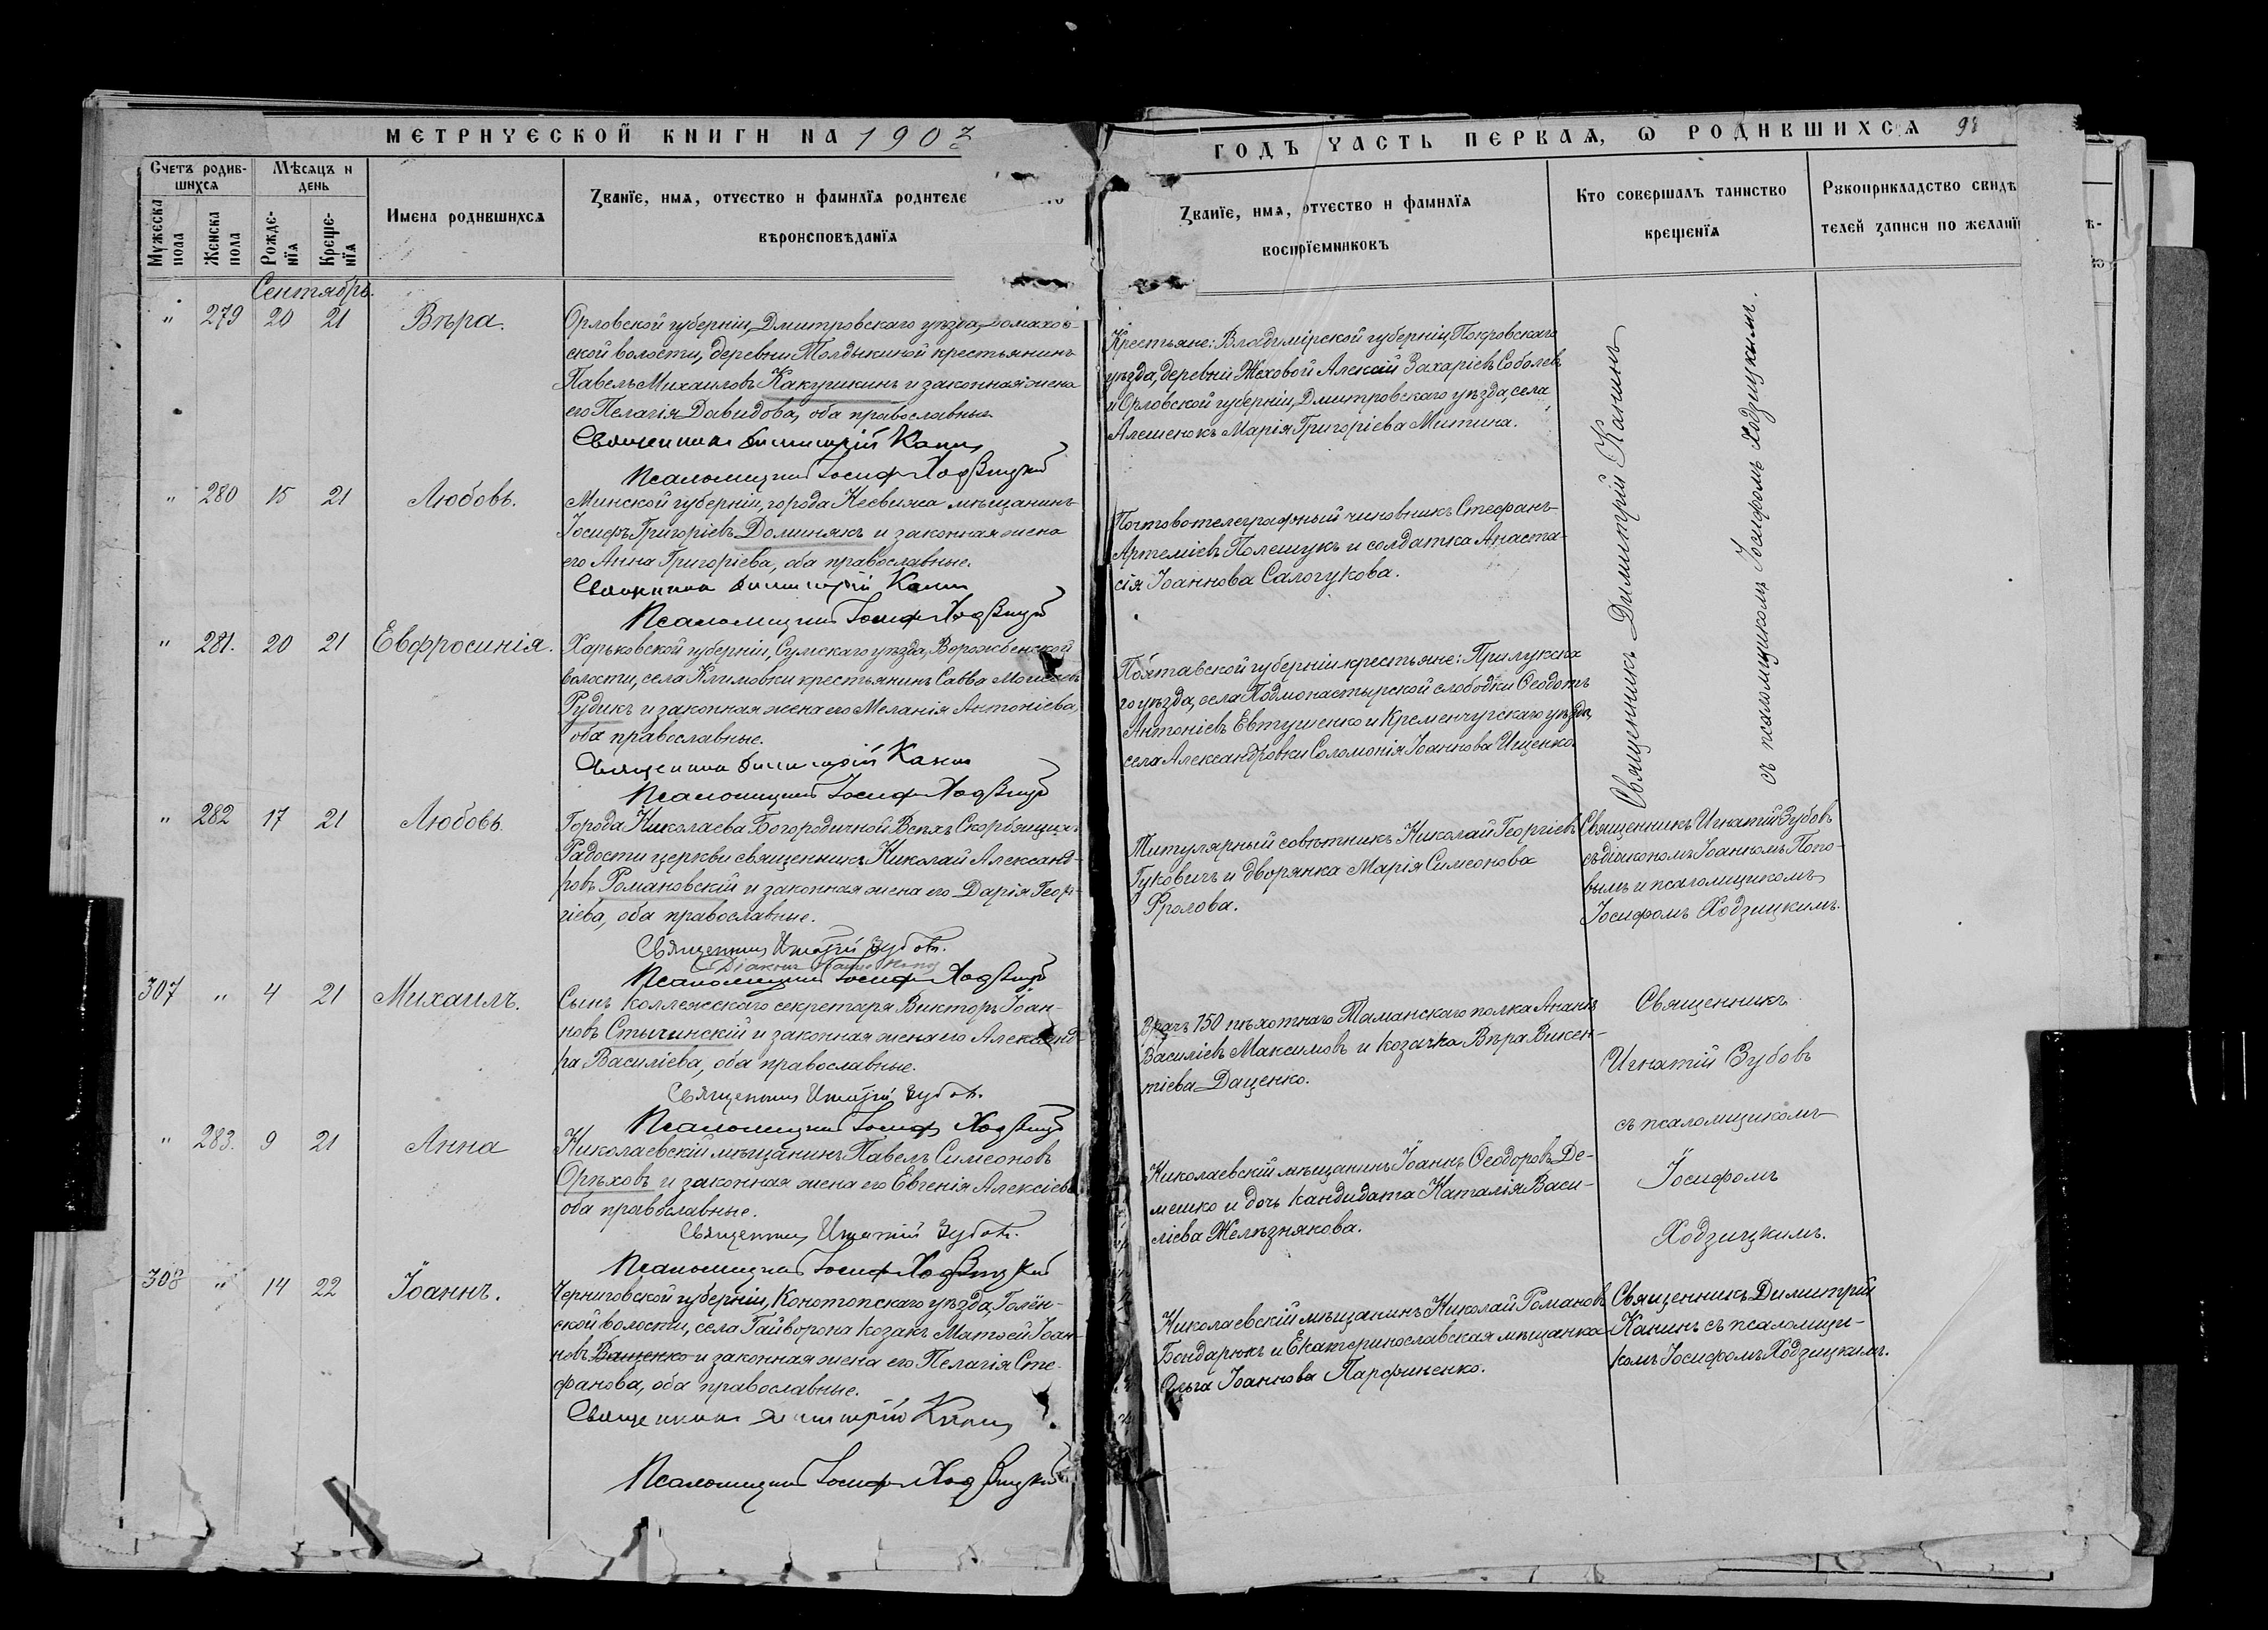 МЕТРИЧЕСКОЙ КНИГИ НА 1902
Счетъ родив-
шихся
Мѣсяцъ и
день
Мужеска
пола
Женска
пола
Рожде-
нїя
Креще-
нїя
Имена родившихся
Званїе, имя, отчество и фамилїя родителе
вѣроисповѣданїя
Сентябрь.
" 279 20 21 Вѣра.
Орловской губерніи, Дмитровскаго уѣзда, Домахов-
ской волости, деревни Толдыкиной крестьянинъ
Павелъ Михаиловъ Какушкинъ и законная жена
его Пелагія Давидова, оба православные.
Священникъ Димитрій Канинъ
Псаломщикъ Іосифъ Ходзицкій
" 280 15 21 Любовь.
Минской губерніи, города Несвижа мѣщанинъ
Іосифъ Григоріевъ Доминякъ и законная жена
его Анна Григоріева, оба православные.
Священникъ Димитрій Канинъ
Псаломщикъ Іосифъ Ходзицкій
" 281. 20 21 Евфросинія.
Харьковской губерніи, Сумскаго уѣзда, Ворожбенской
волости, села Климовки крестьянинъ Савва Моисеевъ
Рудикъ и законная жена его Меланія Антоніева,
оба православные.
Священникъ Димитрій Канинъ
Псаломщикъ Іосифъ Ходзицкій
" 282 17 21 Любовь
Города Николаева Богородичной Всѣхъ Скорбящихъ
Радости церкви священникъ Николай Александ-
ровъ Романовскій и законная жена его Дарія Геор-
гіева, оба православные.
Священникъ Игнатій Зубовъ.
Діаконъ
Псаломщикъ Іосифъ Ходзицкій
307 " 4 21 Михаилъ.
Сынъ коллежскаго секретаря Викторъ Іоан-
новъ Стычинскій и законная жена его Александ-
ра Василіева, оба православные.
Священникъ Игнатій Зубовъ.
Псаломщикъ Іосифъ Ходзицкій
" 283. 9 21 Анна
Николаевскій мѣщанинъ Павелъ Симеоновъ
Орѣховъ и законная жена его Евгенія Алексіева
оба православные.
Священникъ Игнатій Зубовъ.
Псаломщикъ Іосифъ Ходзицкій
308 " 14 22 Іоаннъ.
Черниговской губерніи, Конотопскаго уѣзда, Голён-
ской волости, села Гайворона козакъ Матѳей Іоан-
новъ Ващенко и законная жена его Пелагія Сте-
фанова, оба православные.
Священникъ Димитрій Канинъ
Псаломщикъ Іосифъ Ходзицкій
ГОДЪ ЧАСТЬ ПЕРВАЯ, Ѡ РОДИВШИХСЯ 98
Званїе, имя, отчество и фамилїя
воспрїемниковъ
Кто совершалъ таинство
крещенїя
Рукоприкладство свидѣ
телей записи по желанї
Крестьяне: Владимірской губерніи, Покровскаго
уѣзда, деревни Жеховой Алексій Захаріевъ Соболевъ
и Орловской губерніи, Дмитровскаго уѣзда, села
Алешенокъ Марія Григоріева Митина.
Почтовотелеграфный чиновникъ Стефанъ
Артеміевъ Полещукъ и солдатка Анаста-
сія Іоаннова Салогукова.
Полтавской губерніи крестьяне: Прилукска
го уѣзда, села Подмонастырской слободки Ѳеодотъ
Антоніевъ Евтушенко и Кременчугскаго уѣзда,
села Александровки Соломонія Іоаннова Ищенко.
Священникъ Димитрій Канинъ
съ псаломщикомъ Іосифомъ Ходзицкимъ.
Титулярный совѣтникъ Николай Георгіевъ
Гуковичъ и дворянка Марія Симеонова
Фролова.
Священникъ Игнатій Зубовъ
съ діакономъ Іоанномъ Попо-
вымъ и псаломщикомъ
Іосифомъ Ходзицкимъ.
Врачъ 150 пѣхотнаго Таманскаго полка Ананія
Василіевъ Максимовъ и козачка Вѣра Викен-
тіева Даценко.
Священникъ
Игнатій Зубовъ
съ псаломщикомъ
Іосифомъ
Ходзицкимъ.
Николаевскій мѣщанинъ Іоаннъ Ѳеодоровъ Де-
мешко и дочь кандидата Наталія Васи-
ліева Желѣзнякова.
Николаевскій мѣщанинъ Николай Романовъ
Бондарюкъ и Екатеринославская мѣщанка
Ольга Іоаннова Парфиненко.
Священникъ Димитрій
Канинъ съ псаломщи-
комъ Іосифомъ Ходзицкимъ.